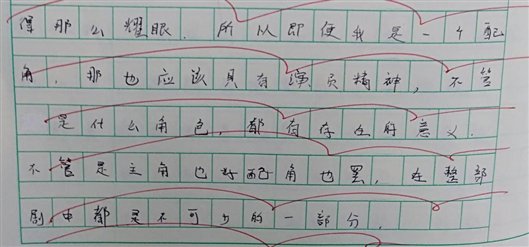 得那么耀眼.所以即使我是一个配
角,那也应该具有演员精神,不管
是什么角色,都有存在的意义.
不管是主角也好配角也罢,在整部
剧中都是不可少的一部分,